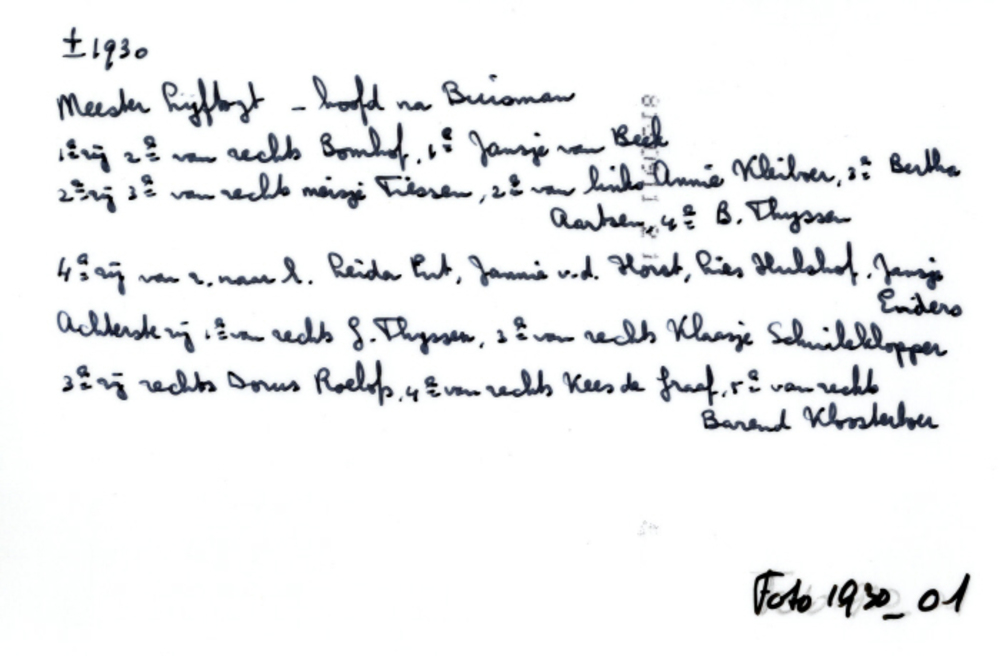 ± 1930
Meester Lijftogt - hoofd na Buisman
1e rij 2e van rechts Bomhof, 1e Jansje van Beek
2e rij 3e van rechts meisje Tiessen, 2e van links Annie Kleiboer, 3e Bertha
Aartsen, 4e B. Thyssen
4e rij van r. naar l. Leida Ent, Jannie v.d. Horst, Lies Hulshof, Jansje
Enders
Achterste rij 1e van rechts G. Thyssen, 3e van rechts Klaasje Schuileklopper
3e rij rechts Dorus Roelofs, 4e van rechts Kees de Graaf, 5e van recht
Barend Kloosterboer
Foto 1930_01